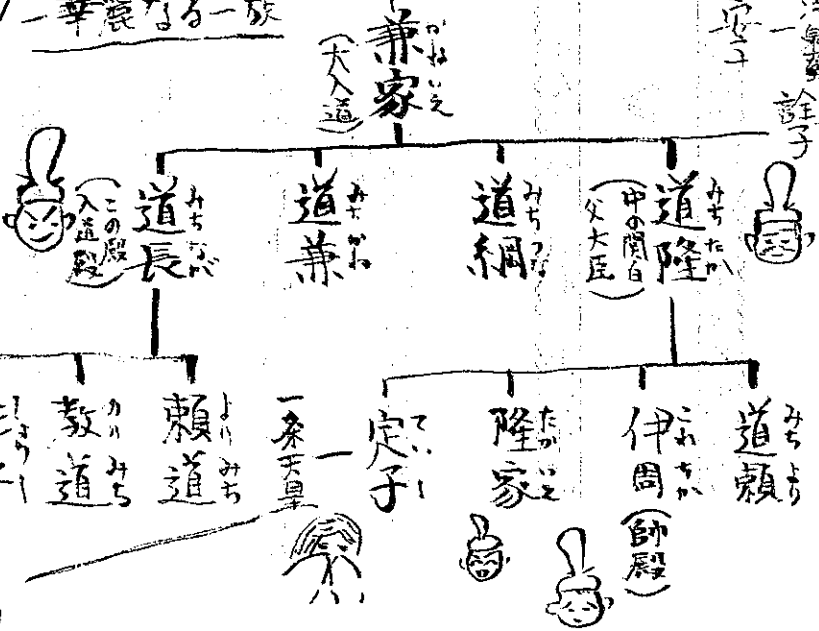 華麗なる一族
兼家
かねいえ
(大入道)
安子
詮子
道隆
みちたか
(中の関白
父大臣)
道綱
みちつな
道兼
みちかね
道長
みちなが
(この殿
入道殿)
道頼
みちより
伊周
これちか
(師殿)
隆家
たかいえ
定子
ていし
一条天皇
頼道
よりみち
教道
のりみち